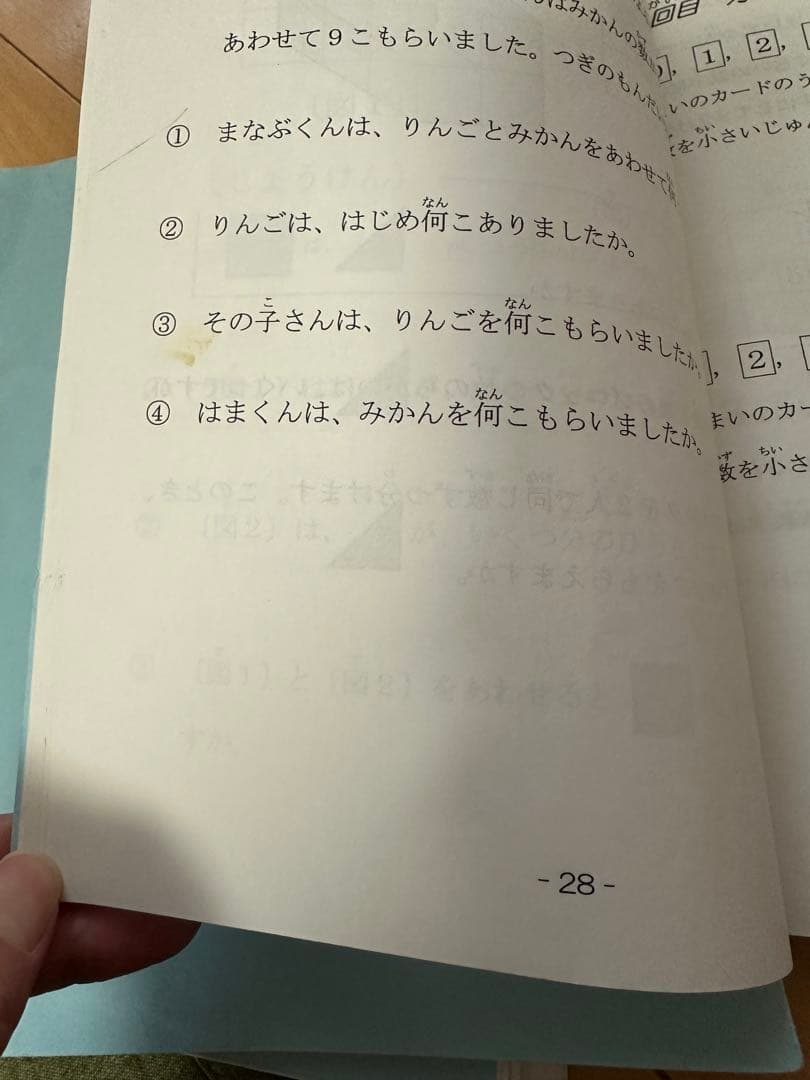 はみかんの
あわせて９こもらいました。つぎのもんだ
① まなぶくんは、りんごとみかんをあわせて
② りんごは、はじめ何こありましたか。
③ その子さんは、りんごを何こもらいましたか。
④ はまくんは、みかんを何こもらいましたか。
- 28 -
回目
1, 2,
いのカードのう
を小さいじゅん
2,
まいのカー
数を小さ